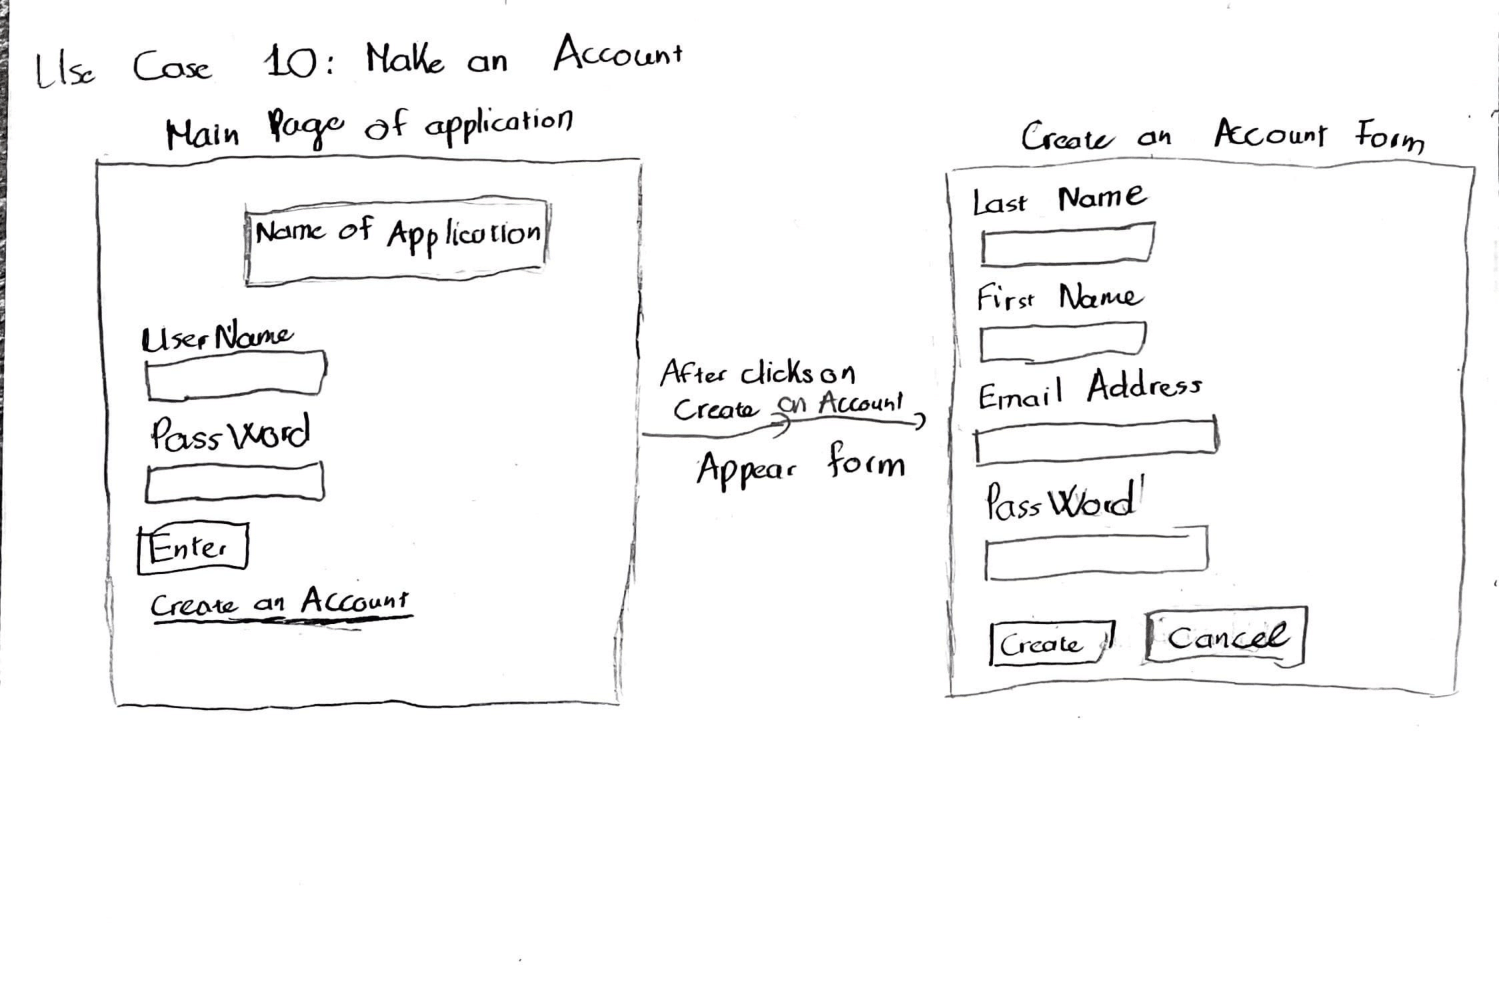 Use Case 10: Make an Account
Main Page of application
Name of Application
UserName
PassWord
Enter
Create an Account
After clicks on
Create an Account
Appear form
Create an Account Form
Last Name
First Name
Email Address
PassWord
Create
Cancel